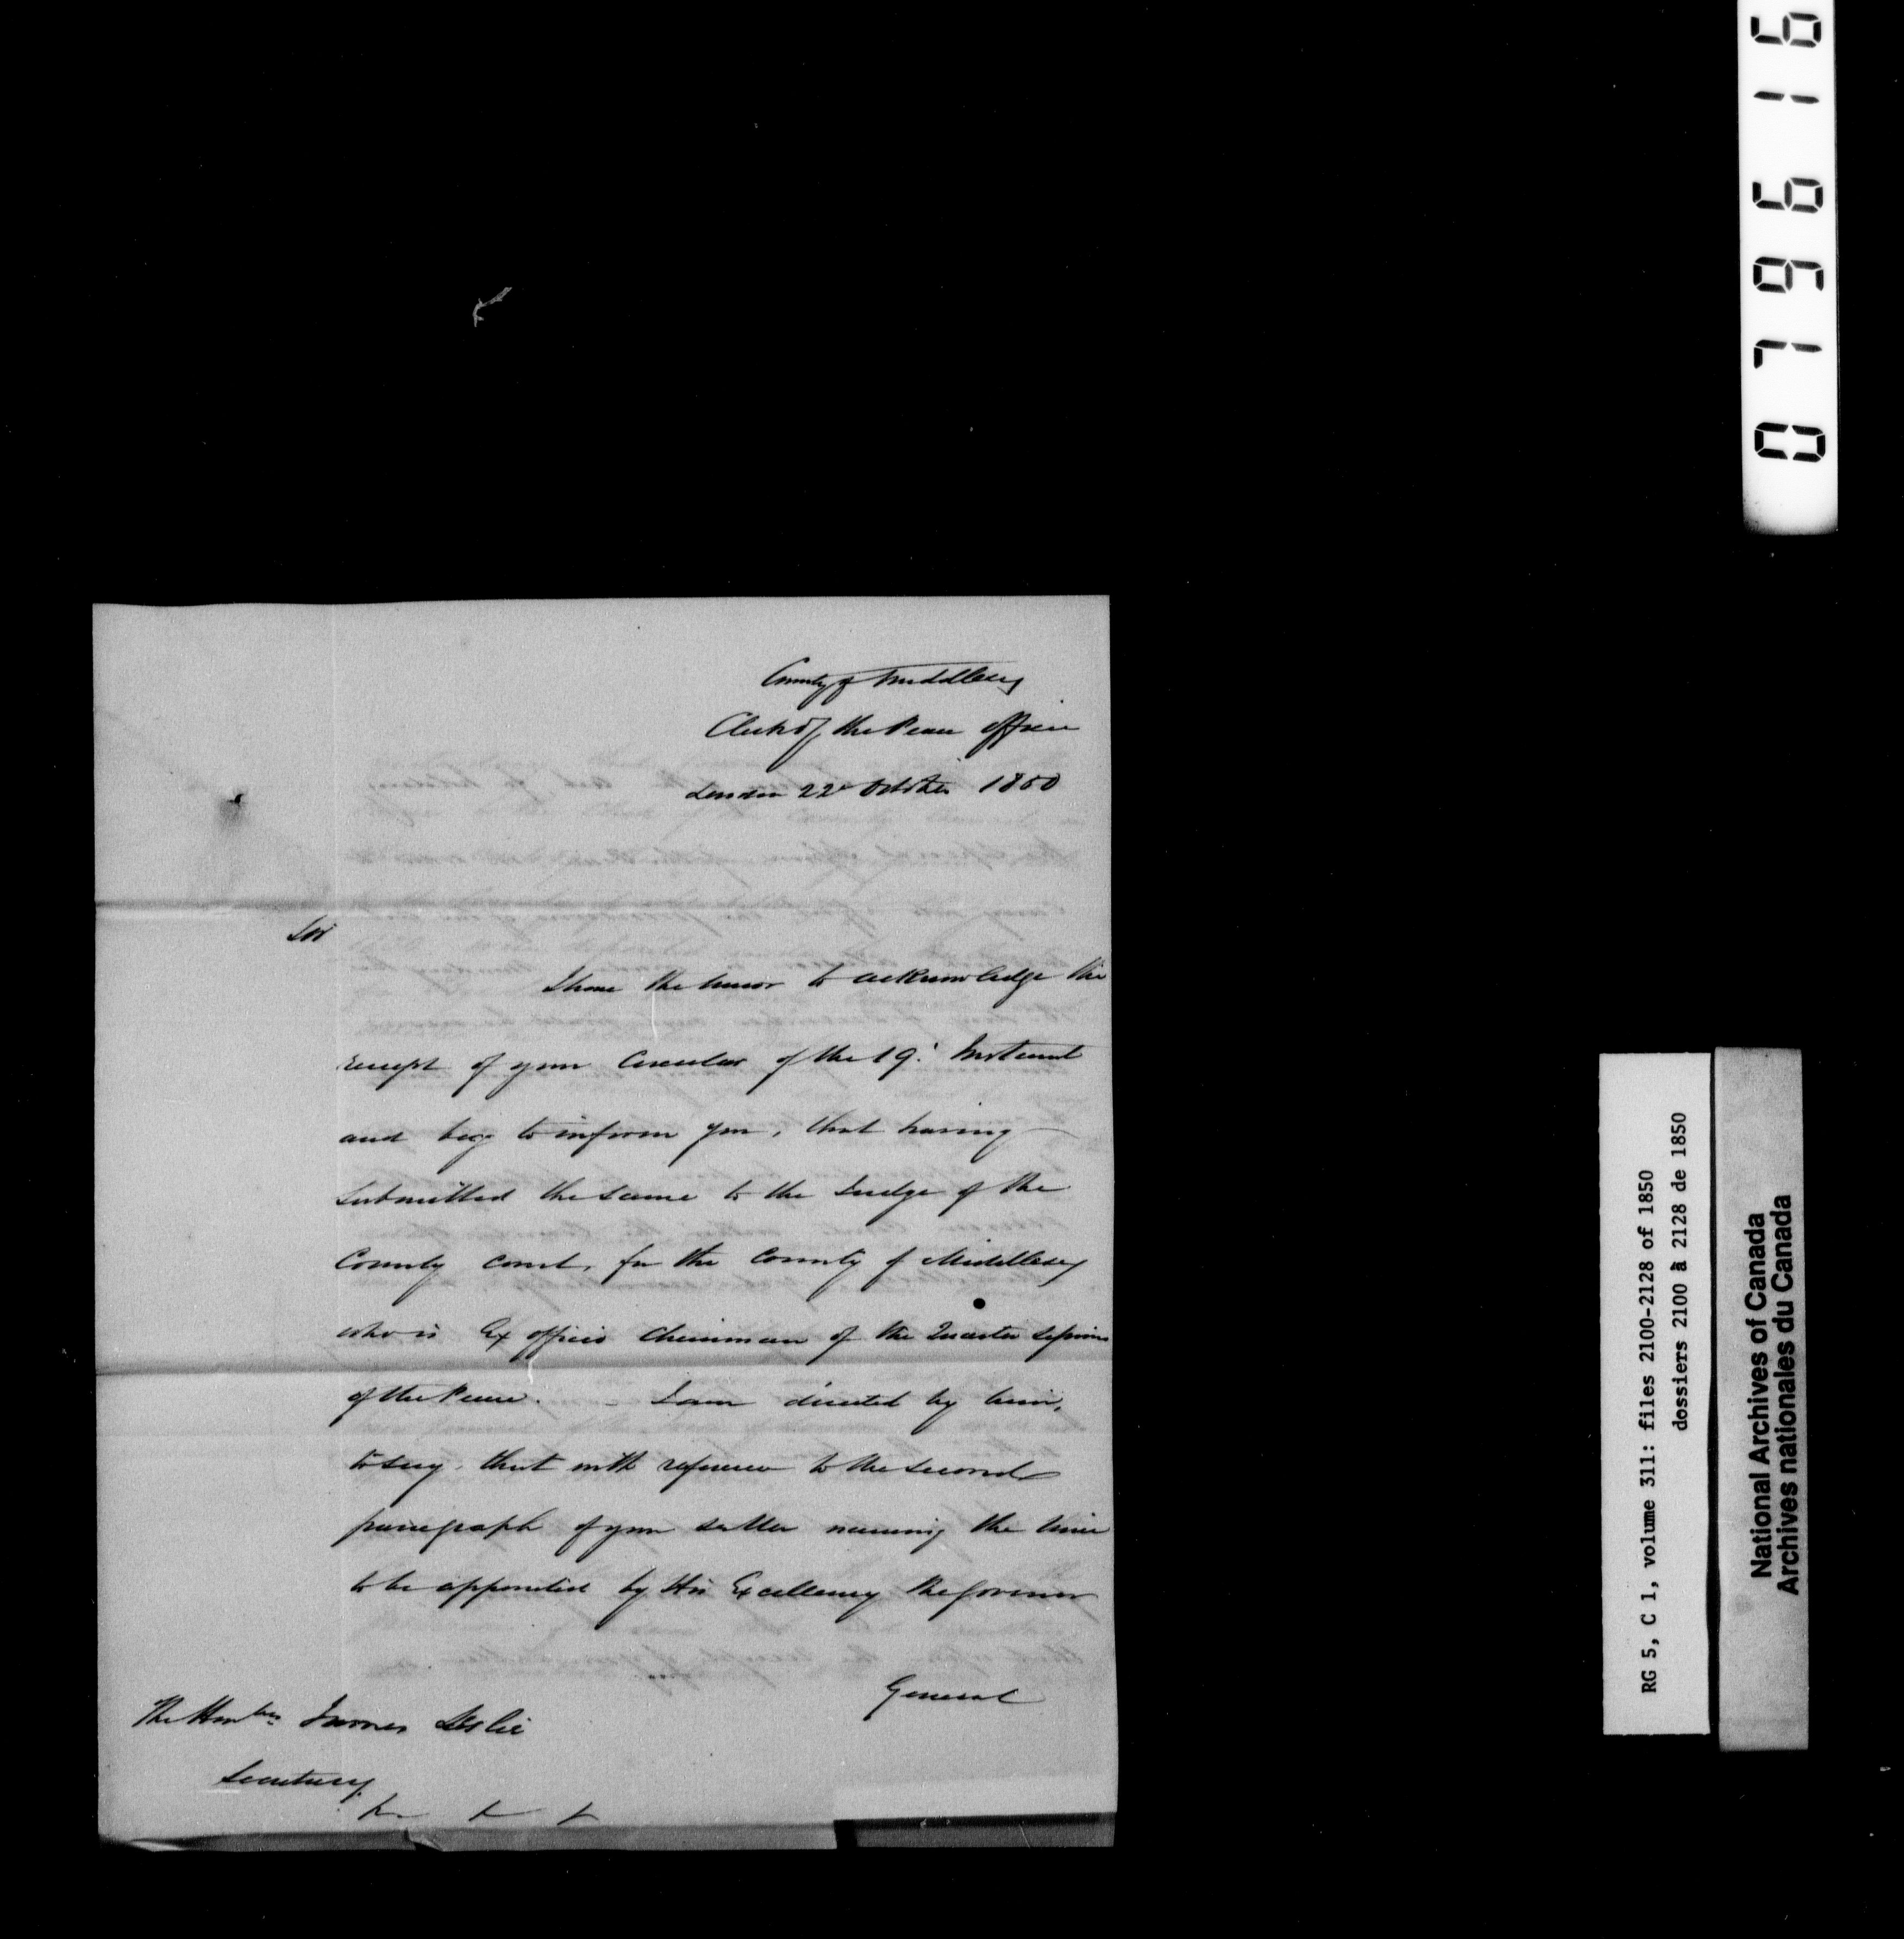 County of Middlesex
Clerk of the Peace Office
London 22d October 1850
Sir
I have the honor to acknowledge the
receipt of your Circular of the 19th Instant
and beg to inform you, that having
submitted the same to the Judge of the
County Court, for the County of Middlesex
who is Ex officio Chairman of the Quarter Sessions
of the Peace. - I am directed by him,
to say, that with reference to the second
paragraph of your Letter naming the time
to be appointed by His Excellency the Governor
General
The Honble James Leslie
Secretary
079616
RG 5, C 1, volume 311: files 2100-2128 of 1850
dossiers 2100 à 2128 de 1850
National Archives of Canada
Archives nationales du Canada